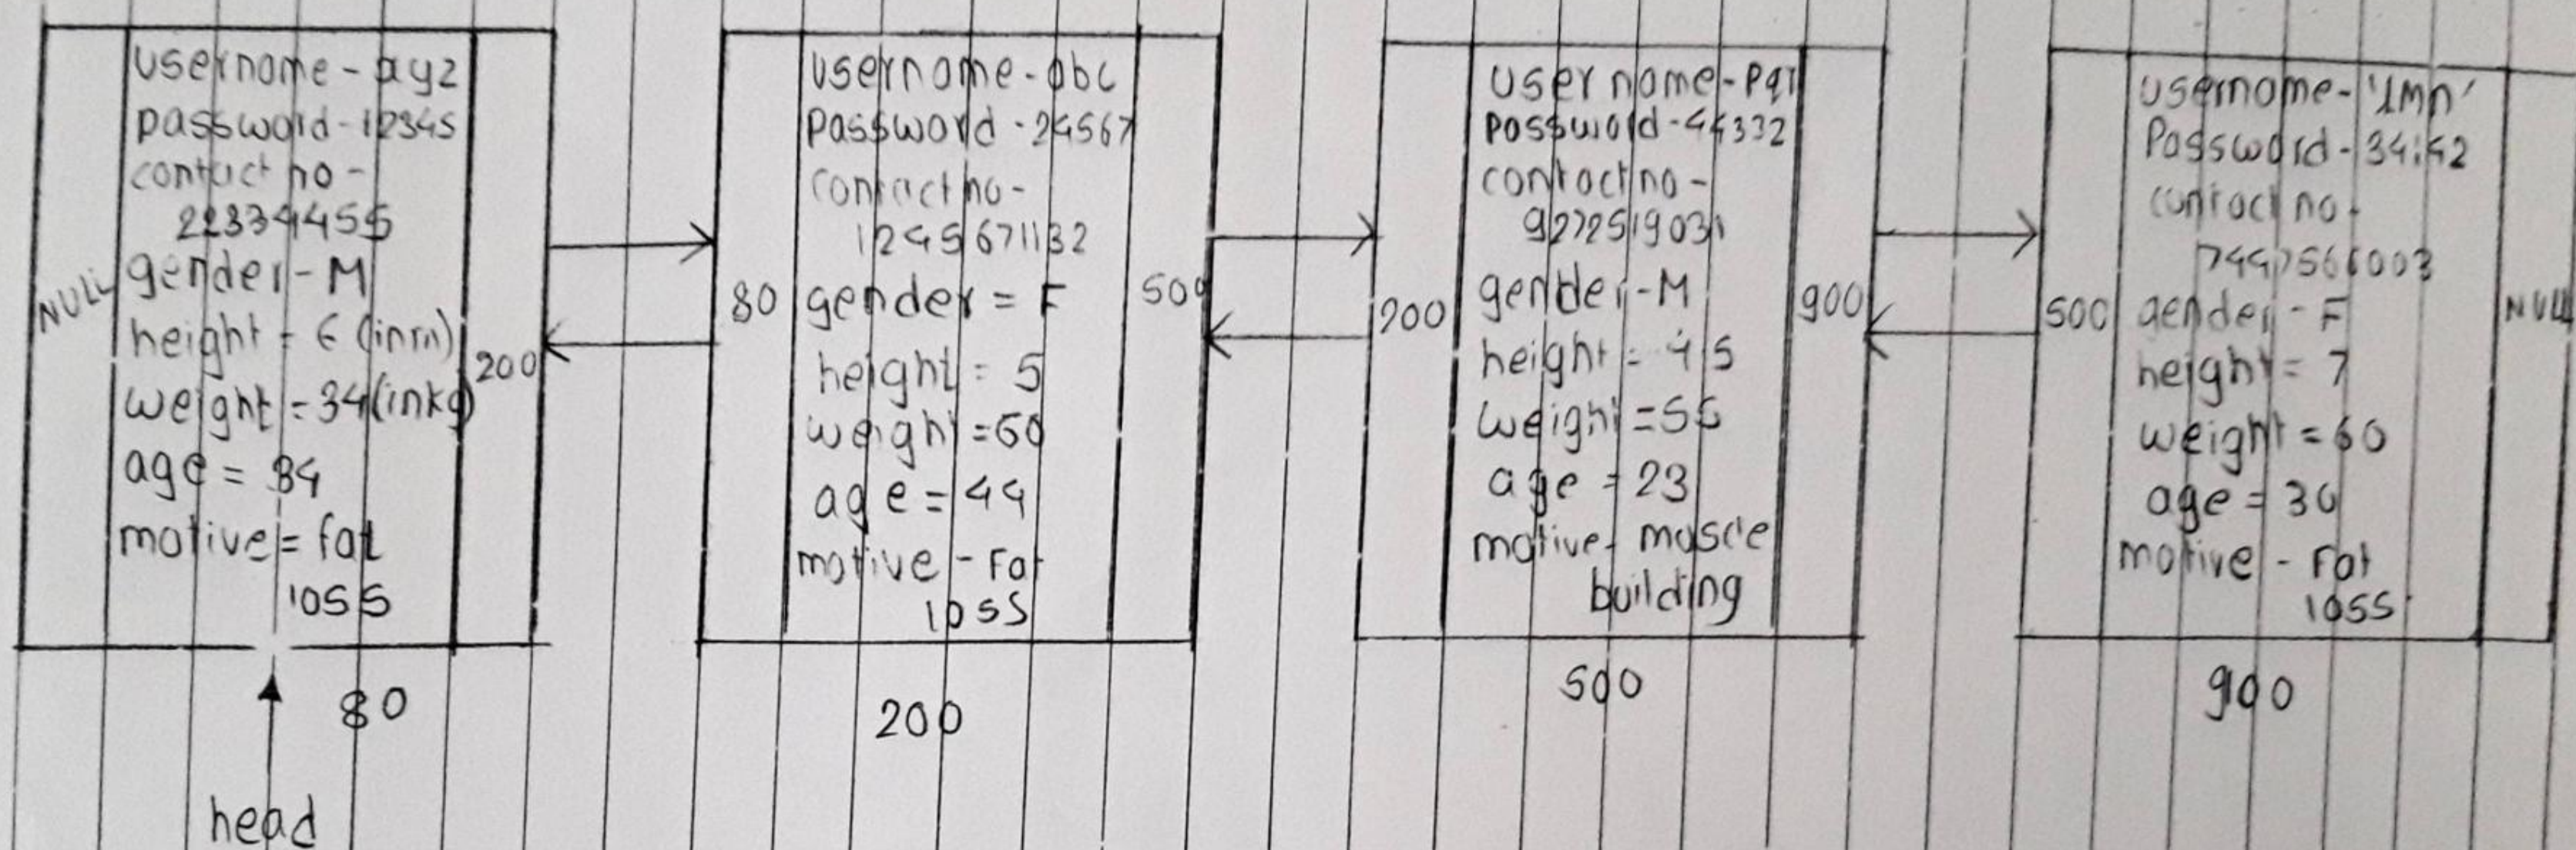 username - xyz
password - 12345
contact no -
22334455
gender - M
height = 6 (in m)
weight = 34 (in kg)
age = 34
motive = fat
loss
NULL
200
80
head
username - abc
Password - 24567
contact no -
1245671132
gender = F
height = 5
weight = 60
age = 44
motive - Fat
loss
80
500
200
user name - pqr
password - 44332
contact no -
9272519031
gender - M
height = 4.5
weight = 55
age = 23
motive - muscle
building
200
900
500
username - 'lmn'
Password -
contact no -
gender - F
height = 7
weight = 60
age = 30
motive - Fat
loss
500
NULL
900